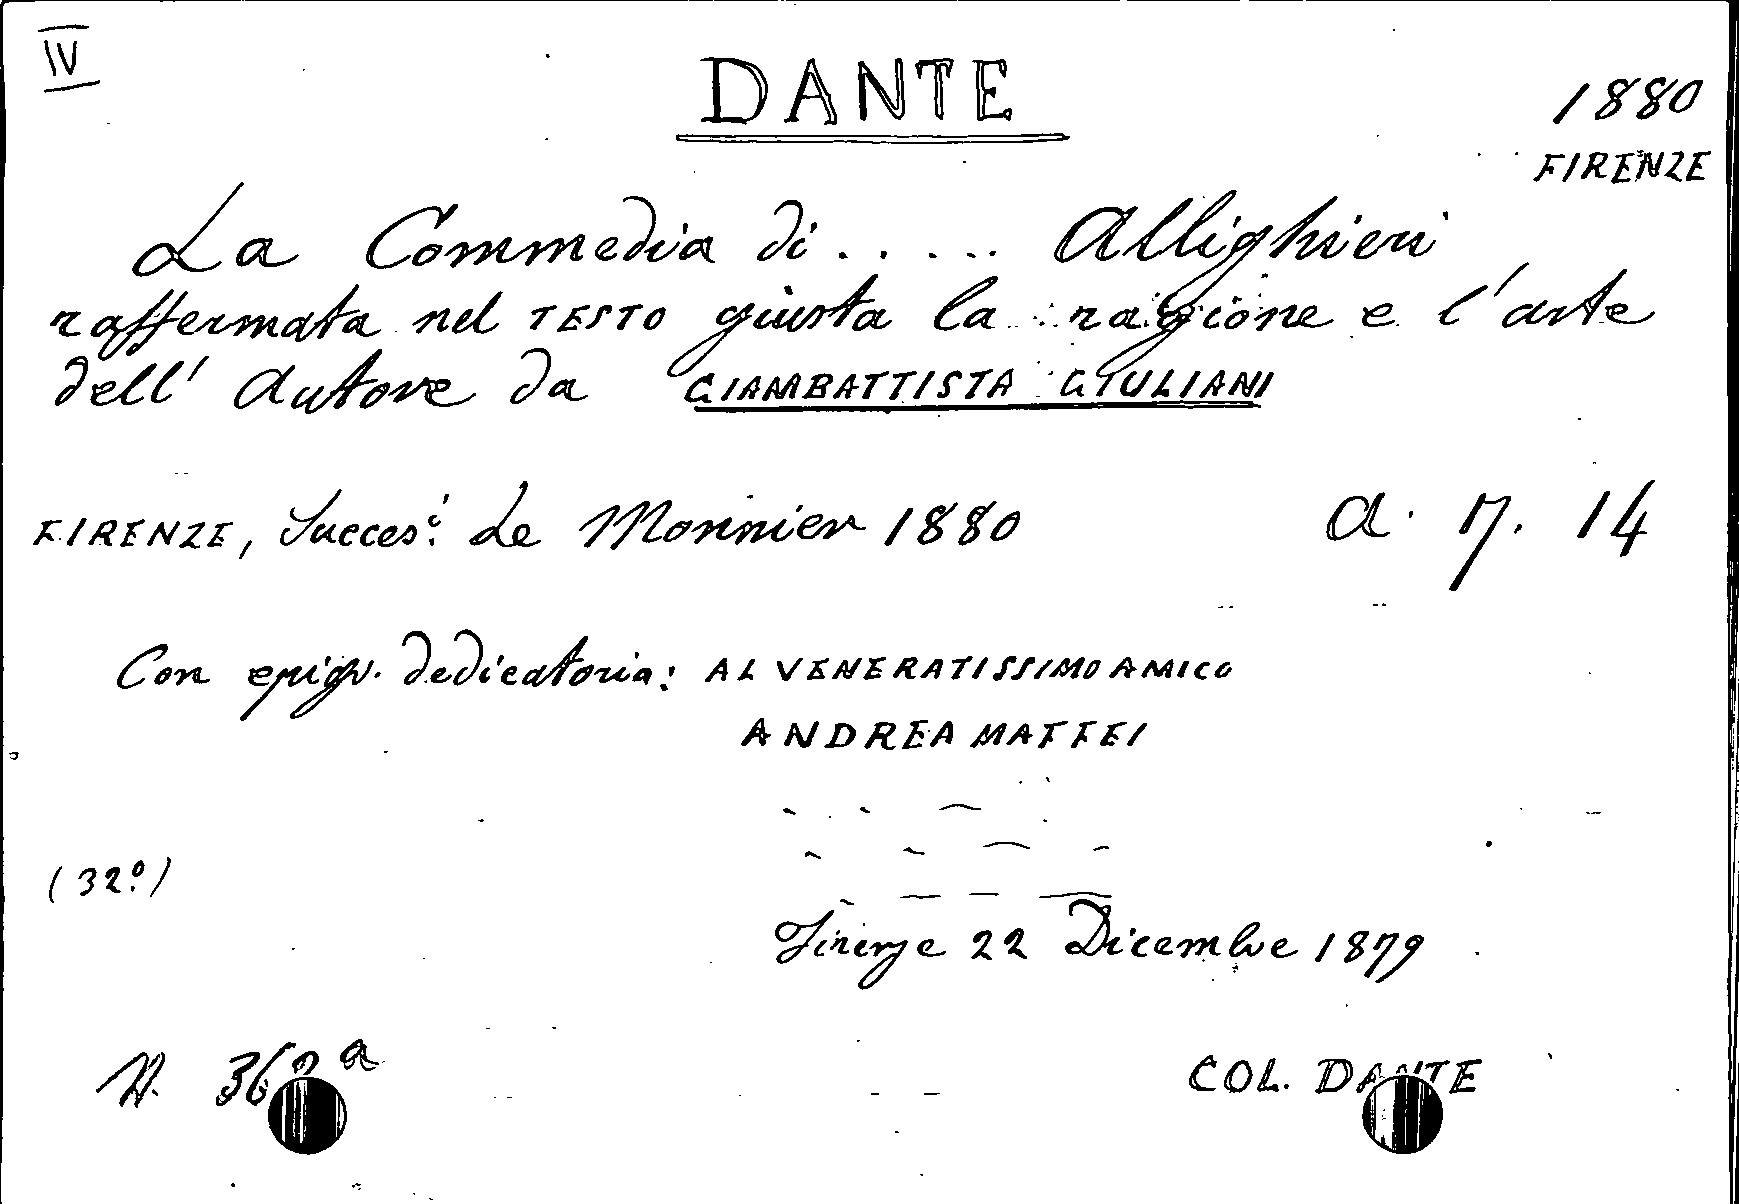 IV
DANTE
1880
FIRENZE
La Commedia di ..... Allighieri
raffermata nel TESTO giusta la ragione e l'arte
dell' Autore da GIAMBATTISTA GIULIANI
FIRENZE, Succes.i Le Monnier 1880 a. 7. 14
Con epigr. dedicatoria: AL VENERATISSIMO AMICO
ANDREA MAFFEI
(32º)
Firenze 22 Dicembre 1879
N.
COL. DANTE